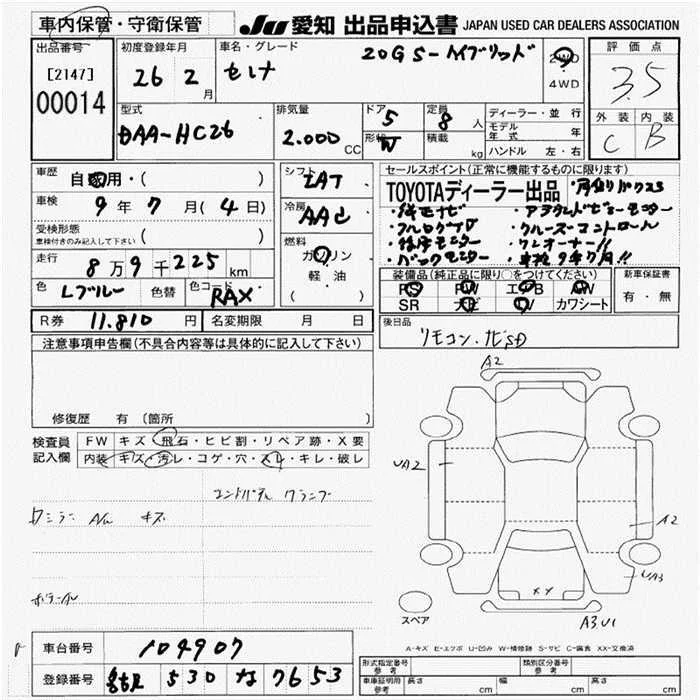 車内保管・守衛保管
JU 愛知 出品申込書 JAPAN USED CAR DEALERS ASSOCIATION
出品番号
[2147]
00014
初度登録年月
26 2 月
車名・グレード
セレナ 20G S-ハイブリッド
2WD
・
4WD
評価点
3.5
外装 内装
C B
型式
DAA-HC26
排気量
2.000 CC
ドア 5
形状 W
定員 8 人
積載 kg
ディーラー・並行
モデル年式 年
ハンドル 左・右
車歴
自家用・( )
車検
9 年 7 月 (4 日)
受検形態
車検付きのみ記入して下さい ( )
走行
8 万 9 千 225 km
色 Lブルー 色替 色コード RAX
シフト
IAT
冷房
AAC
燃料
ガソリン
軽・油
( )
セールスポイント(正常に機能するものに限ります)
TOYOTAディーラー出品
・純正ナビ ・アラウンドビューモニター
・フルセグTV ・クルーズコントロール
・後席モニター ・ワンオーナー!!
・バックモニター ・車検9年7月!!
装備品(純正品に限り○をつけてください)
PS PW エアB AW
SR ナビ TV カワシート
新車保証書
有・無
R券 11.810 円 名変期限 月 日
後日品
リモコン・ナビSD
注意事項申告欄(不具合内容等は具体的に記入して下さい)
修復歴 有 (箇所
検査員記入欄
FW キズ・飛石・ヒビ割・リペア跡・X要
内装 キズ・汚レ・コゲ・穴・スレ・キレ・破レ
A2
UA2
A2
UA3
XY
A3.U1
スペア
A-キズ E-エクボ U-凹み W-補修跡 S-サビ C-腐食 XX-交換済
車台番号 104907
登録番号 530 な 7653
形式指定番号 参考
類別区分番号 参考
車庫証明用 参考 長さ cm 幅 cm 高さ cm